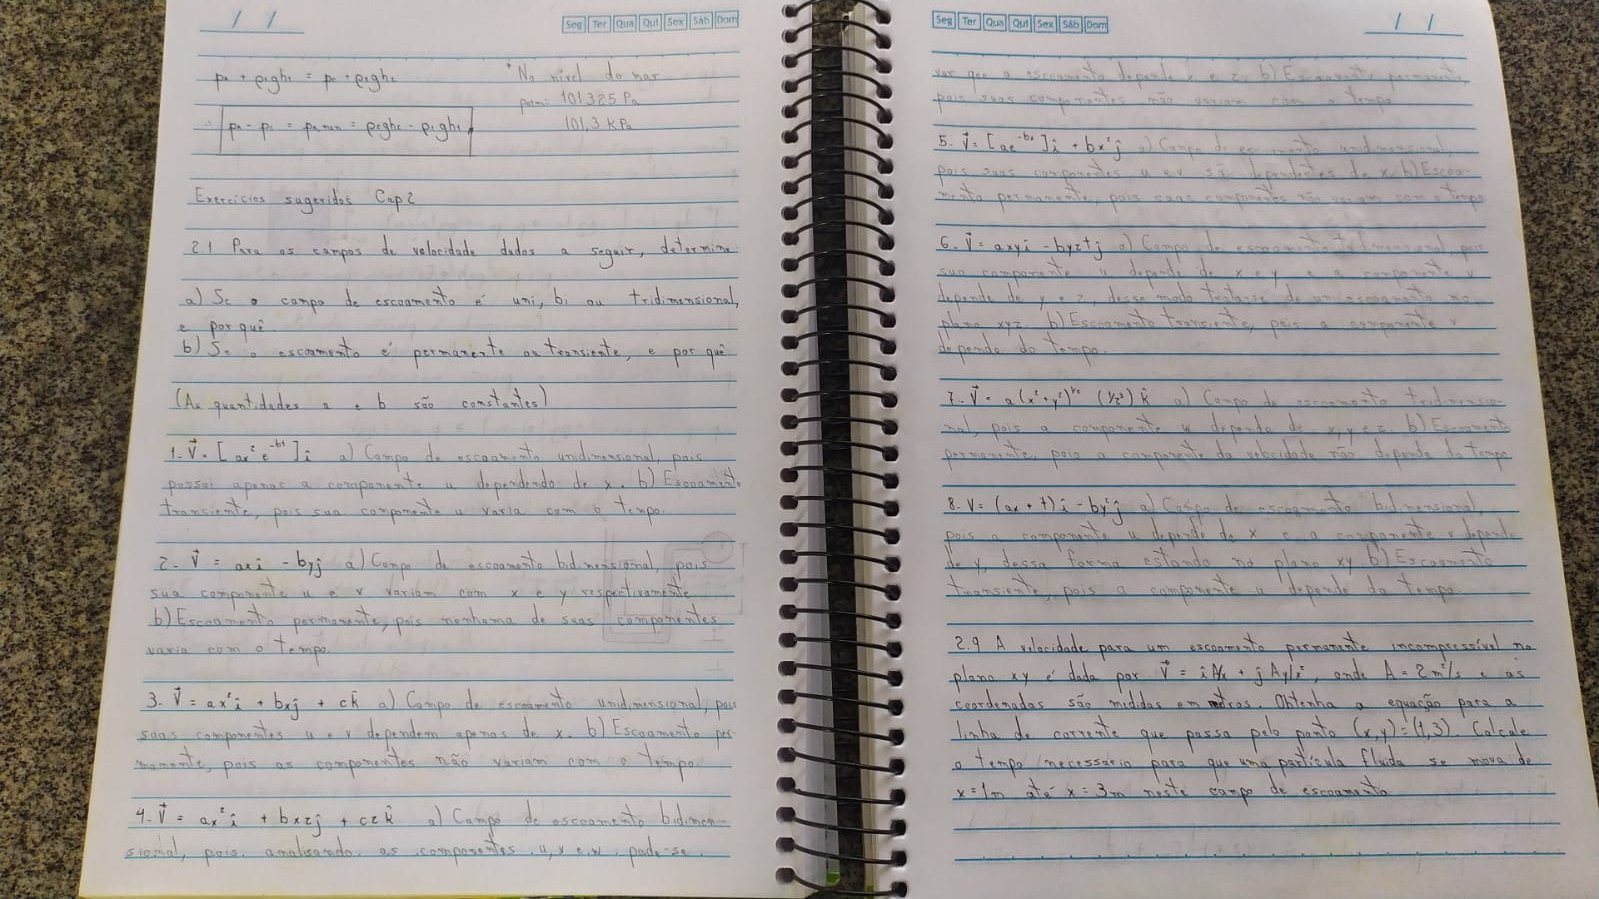 Seg Ter Qua Qui Sex Sáb Dom
pₐ + ρ₁gh₁ = p꜀ + ρ₂gh₂
* No nível do mar
patm: 101325 Pa
101,3 KPa
∴ pₐ - p꜀ = pₐ man = ρ₂gh₂ - ρ₁gh₁
Exercícios sugeridos Cap 2
2.1 Para os campos de velocidade dados a seguir, determine:
a) Se o campo de escoamento é uni, bi ou tridimensional,
e por quê.
b) Se o escoamento é permanente ou transiente, e por quê
(As quantidades a e b são constantes)
1. V⃗ = [ax²e^-bt] î a) Campo de escoamento unidimensional, pois
possui apenas a componente u dependendo de x. b) Escoamento
transiente, pois sua componente u varia com o tempo.
2. V⃗ = axî - byĵ a) Campo de escoamento bidimensional, pois
sua componente u e v variam com x e y respectivamente
b) Escoamento permanente, pois nenhuma de suas componentes
varia com o tempo.
3. V⃗ = ax²î + bxĵ + ck̂ a) Campo de escoamento unidimensional, pois
suas componentes u e v dependem apenas de x. b) Escoamento per-
manente, pois as componentes não variam com o tempo.
4. V⃗ = ax²î + bxzĵ + czk̂ a) Campo de escoamento bidimen-
sional, pois analisando as componentes u, v e w pode-se
Seg Ter Qua Qui Sex Sáb Dom
var que o escoamento depende x e z. b) Escoamento permanente,
pois suas componentes não variam com o tempo
5. V⃗ = [ae^-bx] î + bx²ĵ a) Campo de escoamento unidimensional,
pois suas componentes u e v são dependentes de x. b) Escoa-
mento permanente, pois suas componentes não variam com o tempo
6. V⃗ = axyî - byztĵ a) Campo de escoamento tridimensional, pois
sua componente u depende de x e y e a componente v
depende de y e z, desse modo tratasse de um escoamento no
plano xyz. b) Escoamento transiente, pois a componente v
depende do tempo.
7. V⃗ = a(x² + y²)^1/2 (1/z³) k̂ a) Campo de escoamento tridimensio-
nal, pois a componente w depende de x, y e z. b) Escoamento
permanente, pois a componente da velocidade não depende do tempo
8. V = (ax + t)î - by²ĵ a) Campo de escoamento bidimensional,
pois a componente u depende de x e a componente v depende
de y, dessa forma estando no plano xy b) Escoamento
transiente, pois a componente u depende do tempo.
2.9 A velocidade para um escoamento permanente incompressível no
plano xy é dada por V⃗ = îA/x + ĵAy/x², onde A = 2m²/s e as
coordenadas são medidas em metros. Obtenha a equação para a
linha de corrente que passa pelo ponto (x,y) = (1,3). Calcule
o tempo necessário para que uma partícula fluida se mova de
x = 1m até x = 3m neste campo de escoamento